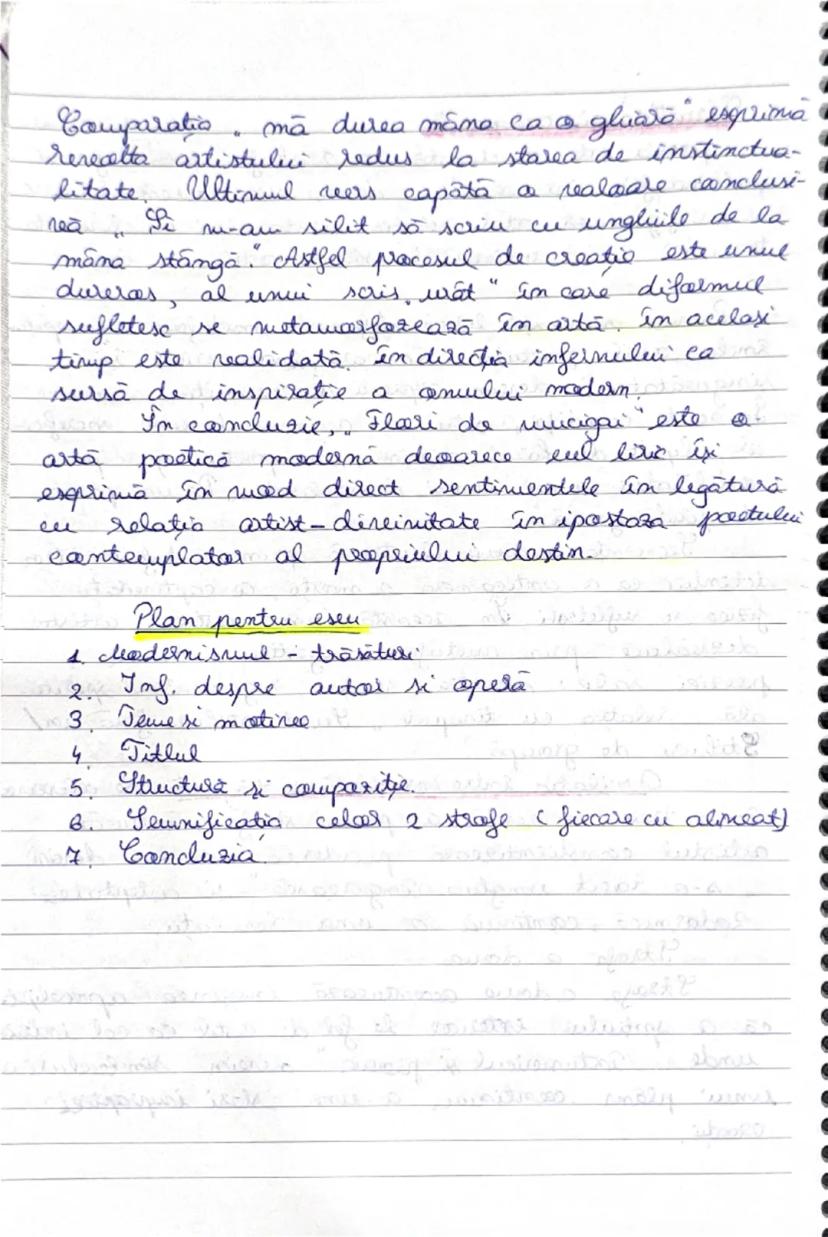 Comparația „ mă durea mâna ca o ghiară" exprimă
revolta artistului redus la starea de instinctua-
litate. Ultimul vers capătă o valoare conclusi-
vă „ Și m-am silit să scriu cu unghiile de la
mâna stângă." Astfel procesul de creație este unul
dureros, al unui scris „urât" în care diformul
sufletesc se metamorfozează în artă. În același
timp este validată în direcția infernului ca
sursă de inspirație a omului modern.
În concluzie, „ Flori de mucigai" este o
artă poetică modernă deoarece eul liric își
exprimă în mod direct sentimentele în legătură
cu relația artist-divinitate în ipostaza poetului
contemplator al propriului destin.
Plan pentru eseu
1. Modernismul - trăsături
2. Inf. despre autor si operă
3. Teme si motive
4. Titlul
5. Structură și compoziție.
6. Semnificația celor 2 strofe ( fiecare cu alineat)
7. Concluzia.